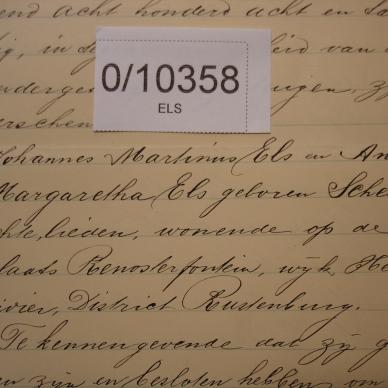 end acht honderd acht en
in
0/10358
ELS
van
Johannes Martinus Els en An
Margaretha Els geboren Sche
hte,lieden, wonende op de
laats Renosterfontein, wijk, He
ivier, District Rustenburg.
Te kennengevende dat zij g
en zijn en besloten hebben om